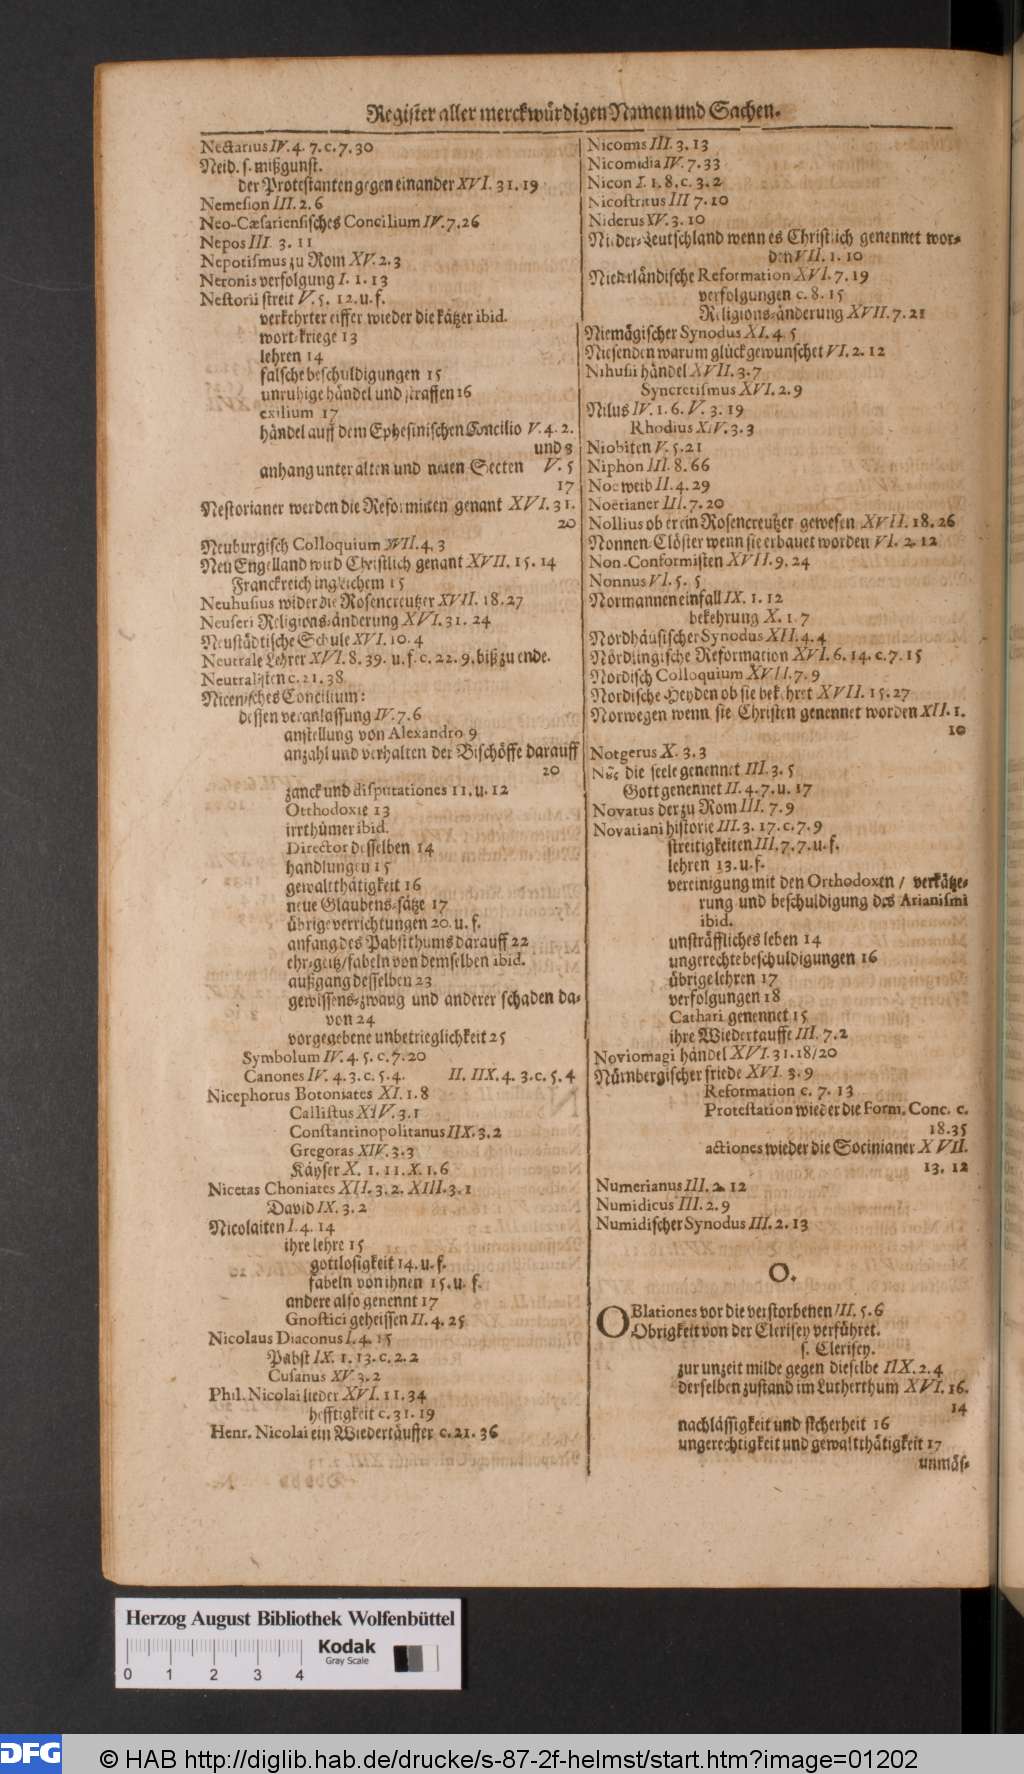 Register aller merckwürdigen Namen und Sachen.
Nectarius IV. 4. 7. c. 7. 30
Neid. s. mißgunst.
der Protestanten gegen einander XVI. 31. 19
Nemesion III. 2. 6
Neo-Cæsariensisches Concilium IV. 7. 26
Nepos III. 3. 11
Nepotismus zu Rom XV. 2. 3
Neronis verfolgung I. 1. 13
Nestorii streit V. 5. 12. u. f.
verkehrter eiffer wieder die kätzer ibid.
wort-kriege 13
lehren 14
falsche beschuldigungen 15
unruhige händel und straffen 16
exilium 17
händel auff dem Ephesinischen Concilio V. 4. 2.
und 3
anhang unter alten und neuen Secten V. 5
17
Nestorianer werden die Reformirten genant XVI. 31.
20
Neuburgisch Colloquium XVII. 4. 3
Neu Engelland wird Christlich genant XVII. 15. 14
Franckreich ingleichem 15
Neuhusius wider die Rosencreutzer XVII. 18. 27
Neuseri Religions-änderung XVI. 31. 24
Neustädtische Schule XVI. 10. 4
Neutrale Lehrer XVI. 8. 39. u. f. c. 22. 9. biß zu ende.
Neutralisten c. 21. 38
Nicenisches Concilium:
dessen veranlassung IV. 7. 6
anstellung von Alexandro 9
anzahl und verhalten der Bischöffe darauff
20
zanck und disputationes 11. u. 12
Orthodoxie 13
irrthümer ibid.
Director desselben 14
handlungen 15
gewaltthätigkeit 16
neue Glaubens-sätze 17
übrige verrichtungen 20. u. f.
anfang des Pabstthums darauff 22
ehr-geitz/fabeln von demselben ibid.
außgang desselben 23
gewissens-zwang und anderer schaden da-
von 24
vorgegebene unbetrieglichkeit 25
Symbolum IV. 4. 5. c. 7. 20
Canones IV. 4. 3. c. 5. 4. II. IIX. 4. 3. c. 5. 4
Nicephorus Botoniates XI. 1. 8
Callistus XIV. 3. 1
Constantinopolitanus IIX. 3. 2
Gregoras XIV. 3. 3
Käyser X. 1. 11. X. 1. 6
Nicetas Choniates XII. 3. 2. XIII. 3. 1
David IX. 3. 2
Nicolaiten I. 4. 14
ihre lehre 15
gottlosigkeit 14. u. f.
fabeln von ihnen 15. u. f.
andere also genennt 17
Gnostici geheissen II. 4. 25
Nicolaus Diaconus I. 4. 15
Pabst IX. 1. 13. c. 2. 2
Cusanus XV. 3. 2
Phil. Nicolai lieder XVI. 11. 34
hefftigkeit c. 31. 19
Henr. Nicolai ein Wiedertäuffer c. 21. 36
Nicomas III. 3. 13
Nicomidia IV. 7. 33
Nicon I. 1. 8. c. 3. 2
Nicostratus III 7. 10
Niderus XV. 3. 10
Nieder-Teutschland wenn es Christlich genennet wor-
den VII. 1. 10
Niederländische Reformation XVI. 7. 19
verfolgungen c. 8. 15
Religions-änderung XVII. 7. 21
Niemägischer Synodus XI. 4. 5
Niesenden warum glück gewünschet VI. 2. 12
Nihusii händel XVII. 3. 7
Syncretismus XVI. 2. 9
Nilus IV. 1. 6. V. 3. 19
Rhodius XIV. 3. 3
Niobiten V. 5. 21
Niphon III. 8. 66
Noe weib II. 4. 29
Noëtianer III. 7. 20
Nollius ob er ein Rosencreutzer gewesen XVII. 18. 26
Nonnen-Clöster wenn sie erbauet worden VI. 2. 12
Non-Conformisten XVII. 9. 24
Nonnus VI. 5. 5
Normannen einfall IX. 1. 12
bekehrung X. 1. 7
Nordhäusischer Synodus XII. 4. 4
Nördlingische Reformation XVI. 6. 14. c. 7. 15
Nordisch Colloquium XVII. 7. 9
Nordische Heyden ob sie bekehret XVII. 15. 27
Norwegen wenn sie Christen genennet worden XII. 1.
10
Notgerus X. 3. 3
Νῦς die seele genennet III. 3. 5
Gott genennet II. 4. 7. u. 17
Novatus der zu Rom III. 7. 9
Novatiani historie III. 3. 17. c. 7. 9
streitigkeiten III. 7. 7. u. f.
lehren 13. u. f.
vereinigung mit den Orthodoxen / verkätze-
rung und beschuldigung des Arianismi
ibid.
unsträffliches leben 14
ungerechte beschuldigungen 16
übrige lehren 17
verfolgungen 18
Cathari genennet 15
ihre Wiedertauffe III. 7. 2
Noviomagi händel XVI. 31. 18/20
Nürnbergischer friede XVI. 3. 9
Reformation c. 7. 13
Protestation wieder die Form. Conc. c.
18. 35
actiones wieder die Socinianer XVII.
13. 12
Numerianus III. 2. 12
Numidicus III. 2. 9
Numidischer Synodus III. 2. 13
O.
OBlationes vor die verstorbenen III. 5. 6
Obrigkeit von der Clerisey verführet.
s. Clerisey.
zur unzeit milde gegen dieselbe IIX. 2. 4
derselben zustand im Lutherthum XVI. 16.
14
nachlässigkeit und sicherheit 16
ungerechtigkeit und gewaltthätigkeit 17
unmäs-
Herzog August Bibliothek Wolfenbüttel
Kodak
Gray Scale
0 1 2 3 4
DFG
© HAB http://diglib.hab.de/drucke/s-87-2f-helmst/start.htm?image=01202